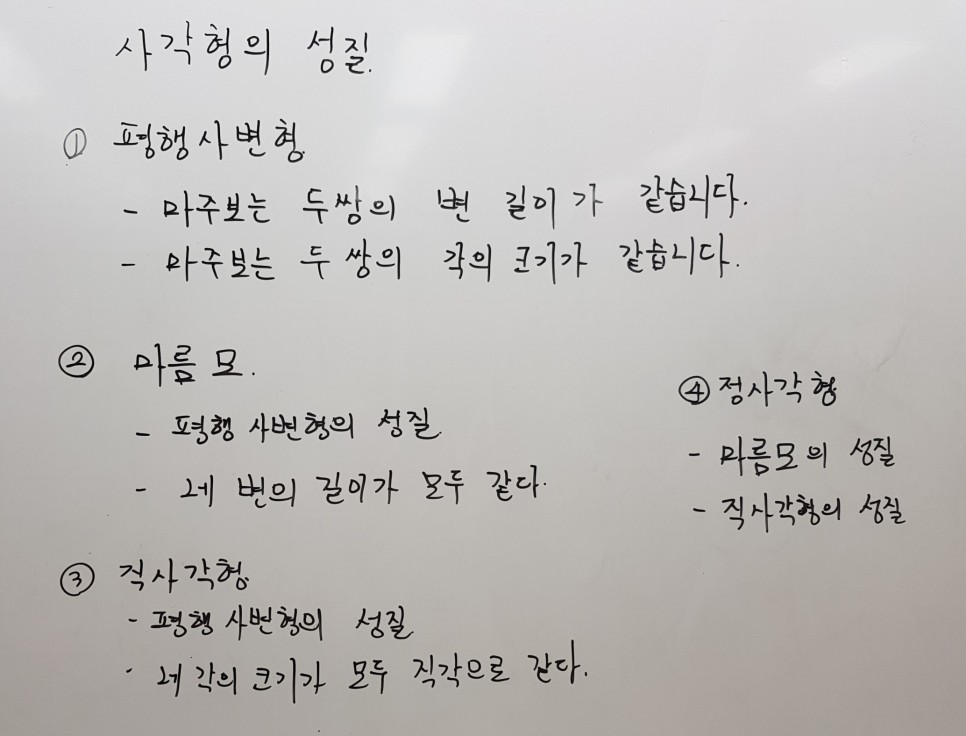 사각형의 성질.
① 평행사변형
- 마주보는 두쌍의 변 길이가 같습니다.
- 마주보는 두 쌍의 각의 크기가 같습니다.
② 마름모.
- 평행사변형의 성질
- 네 변의 길이가 모두 같다.
③ 직사각형
- 평행사변형의 성질
- 네 각의 크기가 모두 직각으로 같다.
④ 정사각형
- 마름모의 성질
- 직사각형의 성질